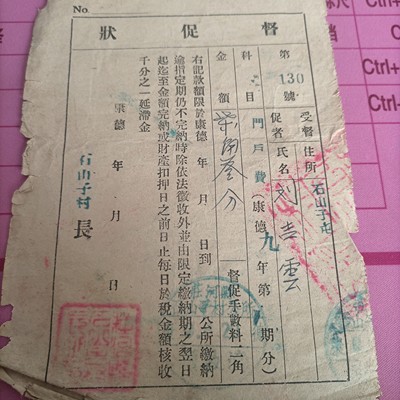 No.
督促狀
第130號
受督促者
住所 石山子屯
氏名 刘吉雲
科目 門戶費（康德九年第 期分）
金額 柒角叁分
督促手數料二角
右記款額限於康德 年 月 日到 公所繳納
逾指定期仍不完納時除依法徵收外並由限定繳納期之翌日
起迄至金額完納或財產扣押日之前日止每日於稅金額核收
千分之一延滯金
康德 年 月 日
石山子村長
Ctrl+
Ctrl+
Ctrl+
Ctrl+